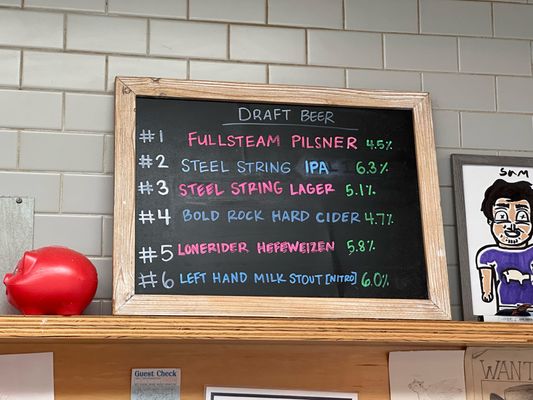 DRAFT BEER
#1 FULLSTEAM PILSNER 4.5%
#2 STEEL STRING IPA 6.3%
#3 STEEL STRING LAGER 5.1%
#4 BOLD ROCK HARD CIDER 4.7%
#5 LONERIDER HEFEWEIZEN 5.8%
#6 LEFT HAND MILK STOUT [NITRO] 6.0%
SAM
Guest Check
WANT